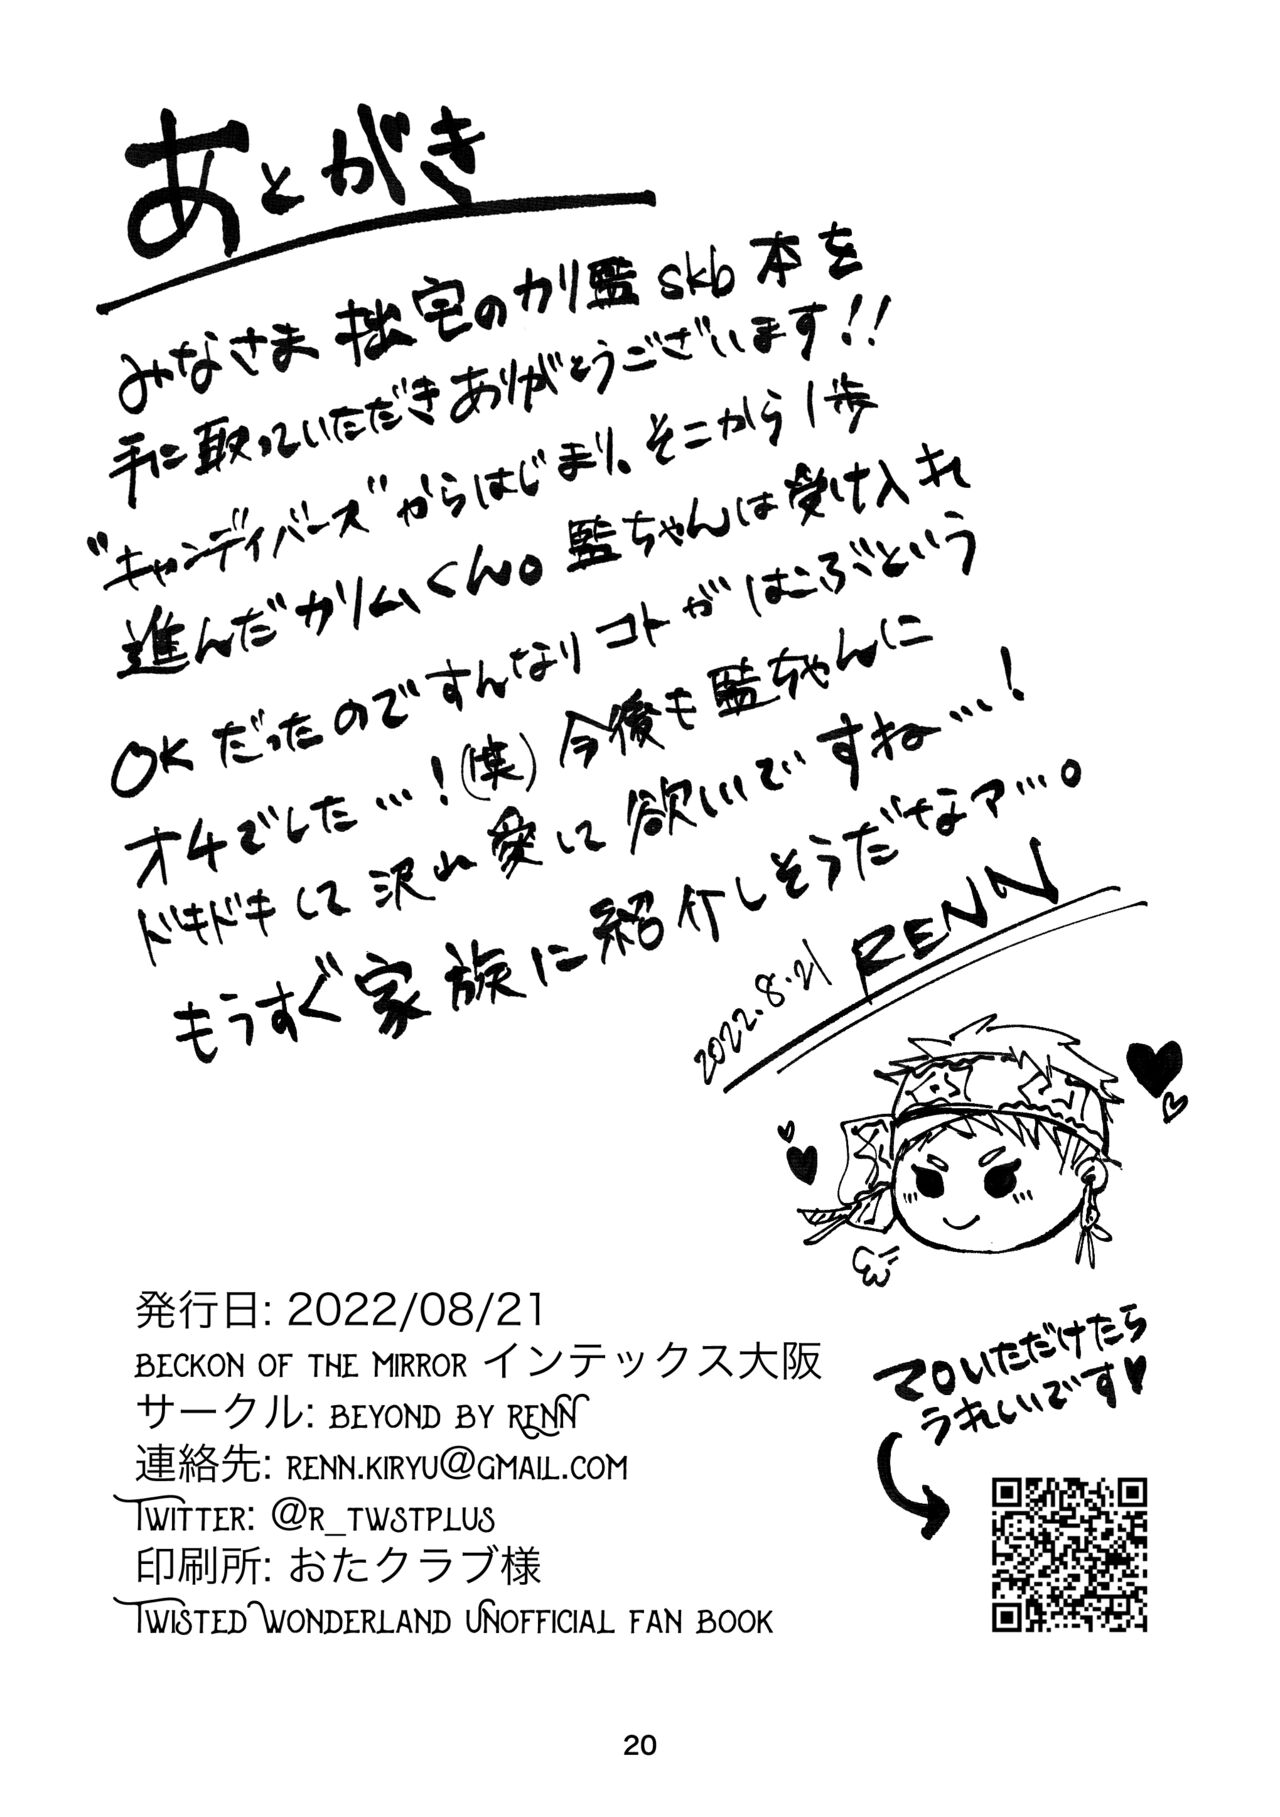 あとがき
みなさま 拙宅のカリ監skb本を
手に取っていただきありがとうございます!!
"キャンディバース"からはじまり。そこから1歩
進んだカリムくん。監ちゃんは受け入れ
OKだったのですんなりコトがはこぶという
オチでした…!(笑) 今後も監ちゃんに
ドキドキして沢山愛して欲しいですね…!
もうすぐ家族に紹介しそうだなァ…。
2022.8.21 RENN
マロいただけたら
うれしいです♥
発行日: 2022/08/21
BECKON OF THE MIRROR インテックス大阪
サークル: BEYOND BY RENN
連絡先: RENN.KIRYU@GMAIL.COM
TWITTER: @R_TWSTPLUS
印刷所: おたクラブ様
TWISTED WONDERLAND UNOFFICIAL FAN BOOK
20